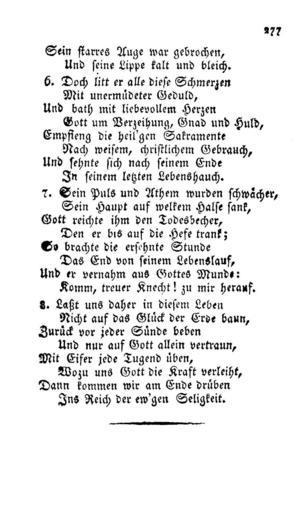 277
Sein starres Auge war gebrochen,
Und seine Lippe kalt und bleich.
6. Doch litt er alle diese Schmerzen
Mit unermüdeter Geduld,
Und bath mit liebevollem Herzen
Gott um Verzeihung, Gnad und Huld,
Empfieng die heil'gen Sakramente
Nach weisem, christlichem Gebrauch,
Und sehnte sich nach seinem Ende
In seinem letzten Lebenshauch.
7. Sein Puls und Athem wurden schwächer,
Sein Haupt auf welkem Halse sank,
Gott reichte ihm den Todesbecher,
Den er bis auf die Hefe trank;
So brachte die ersehnte Stunde
Das End von seinem Lebenslauf,
Und er vernahm aus Gottes Munde:
Komm, treuer Knecht! zu mir herauf.
8. Laßt uns daher in diesem Leben
Nicht auf das Glück der Erde baun,
Zurück vor jeder Sünde beben
Und nur auf Gott allein vertraun,
Mit Eifer jede Tugend üben,
Wozu uns Gott die Kraft verleiht,
Dann kommen wir am Ende drüben
Ins Reich der ew'gen Seligkeit.